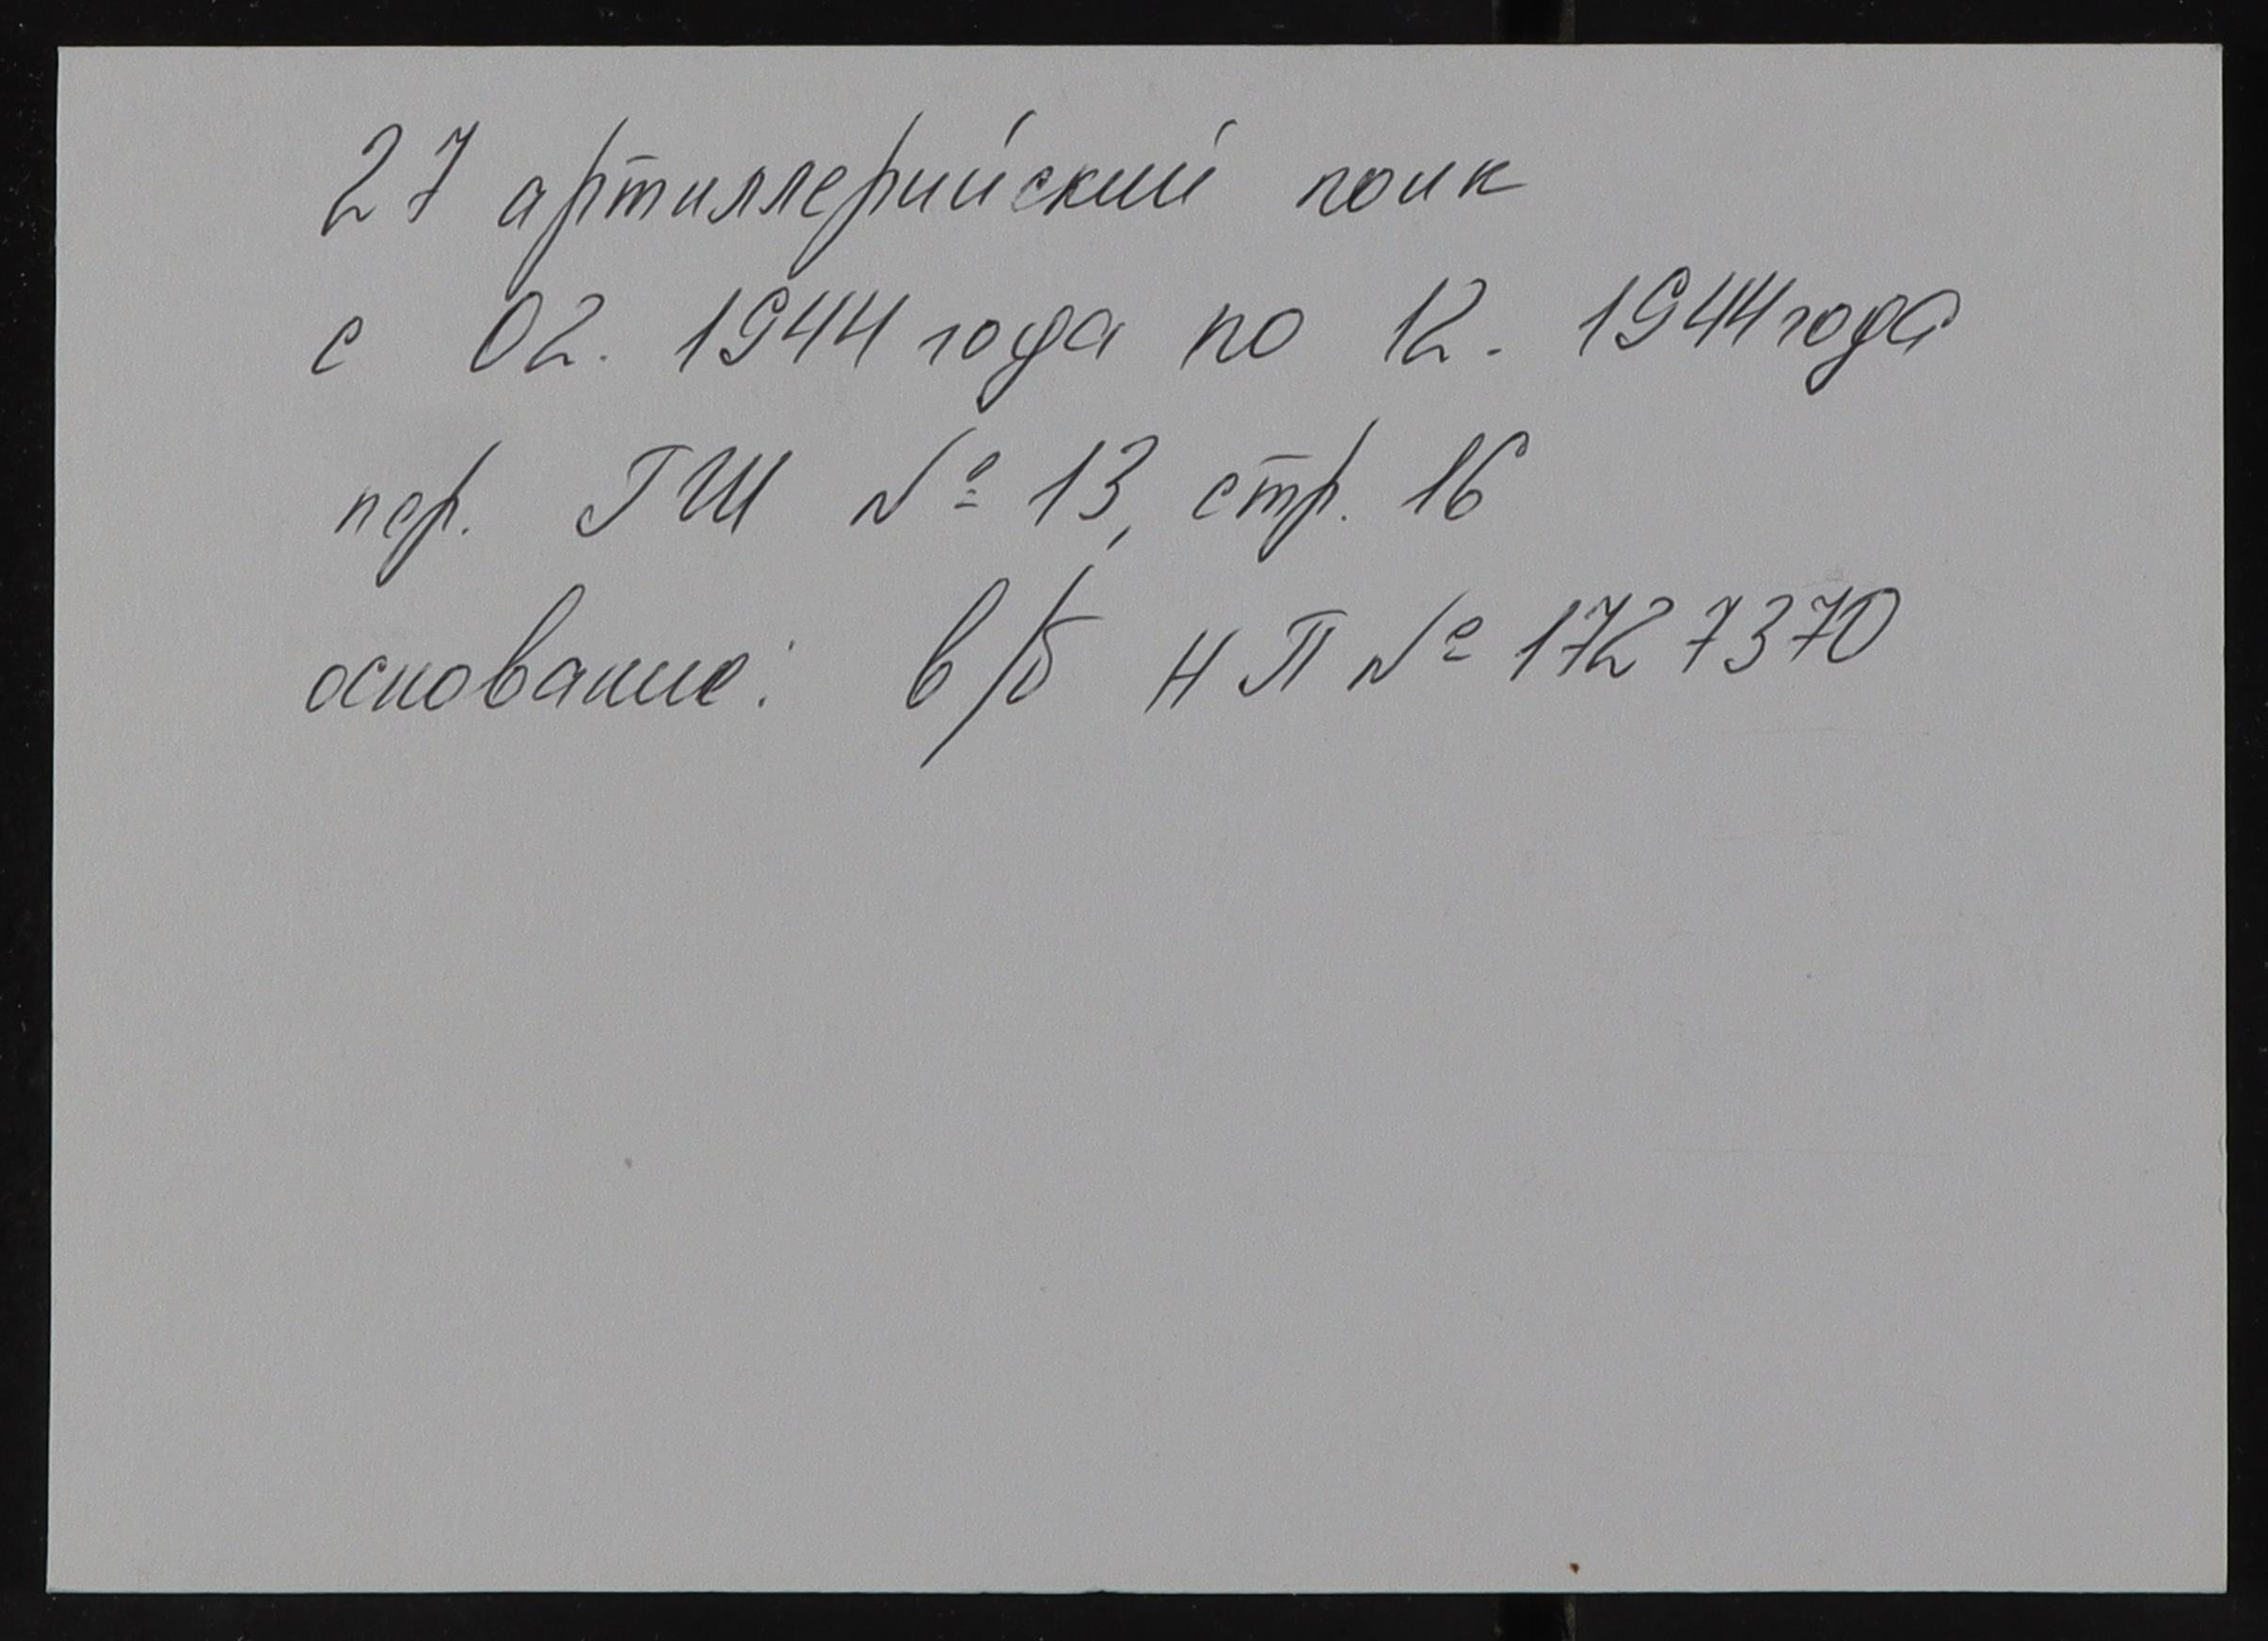 27 артиллерийский полк
с 02. 1944 года по 12. 1944 года
пер. ГШ № 13, стр. 16
основание: в/б НП № 1727370